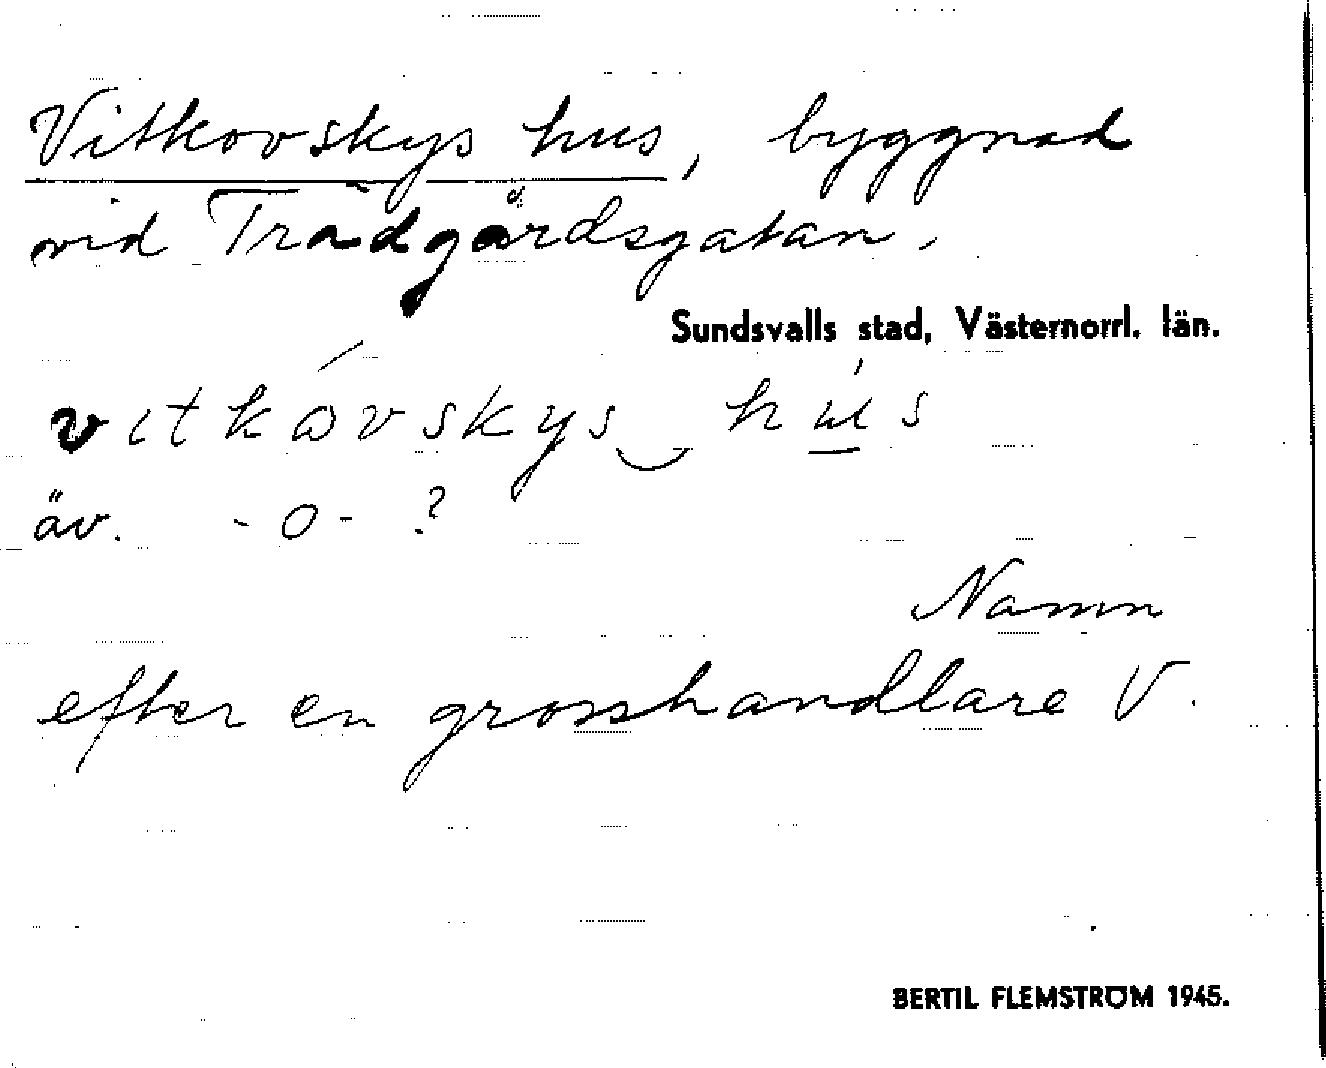 Vitkovskys hus, byggnad
vid Trädgårdsgatan.
Sundsvalls stad, Västernorrl. län.
vitkåvskys‿hú̲s
äv. -o- ?
Namn
efter en grosshandlare V.
BERTIL FLEMSTRÖM 1945.